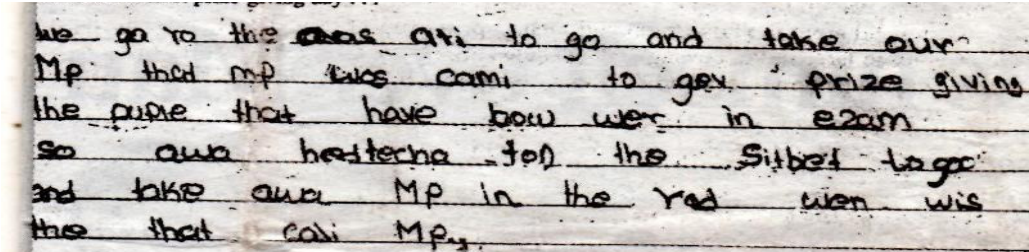 we go to the ari to go and take our
Mp thad mp was cami to gev prize giving
the pupie that have bow wer in ezam
so awa hedtecha ton the Sitbet to goo
and take awa MP in the rod wen wis
the that cali Mp